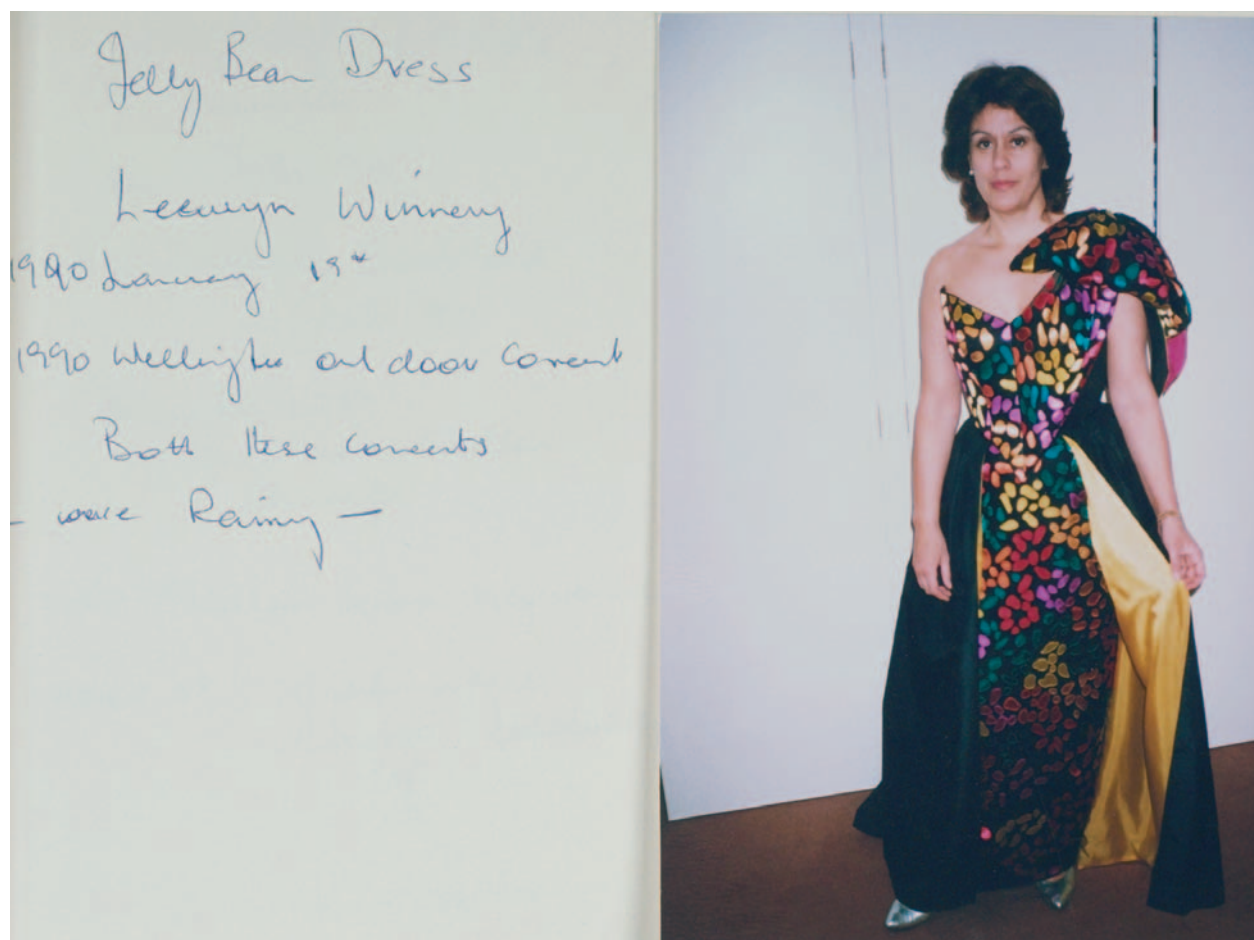 Jelly Bean Dress
Leewyn Winnery
1990 January 19th
1990 Wellington out door Concert
Both these concerts
- were Rainy -